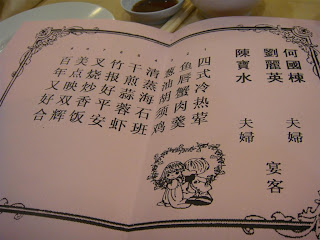 何國棟 夫婦
劉麗英 宴客
陳寶水 夫婦
四式冷热荤
鱼唇蟹肉羹
葱油胡须鸡
清蒸海石班
干煎蒜蓉虾
竹报好平安
叉烧炒香饭
美点映双辉
百年又好合